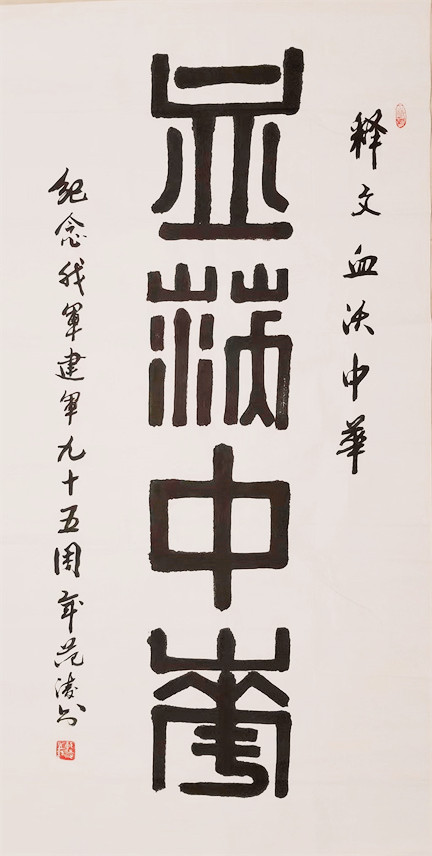 释文血沃中華
血沃中華
纪念我軍建軍九十五周年范书